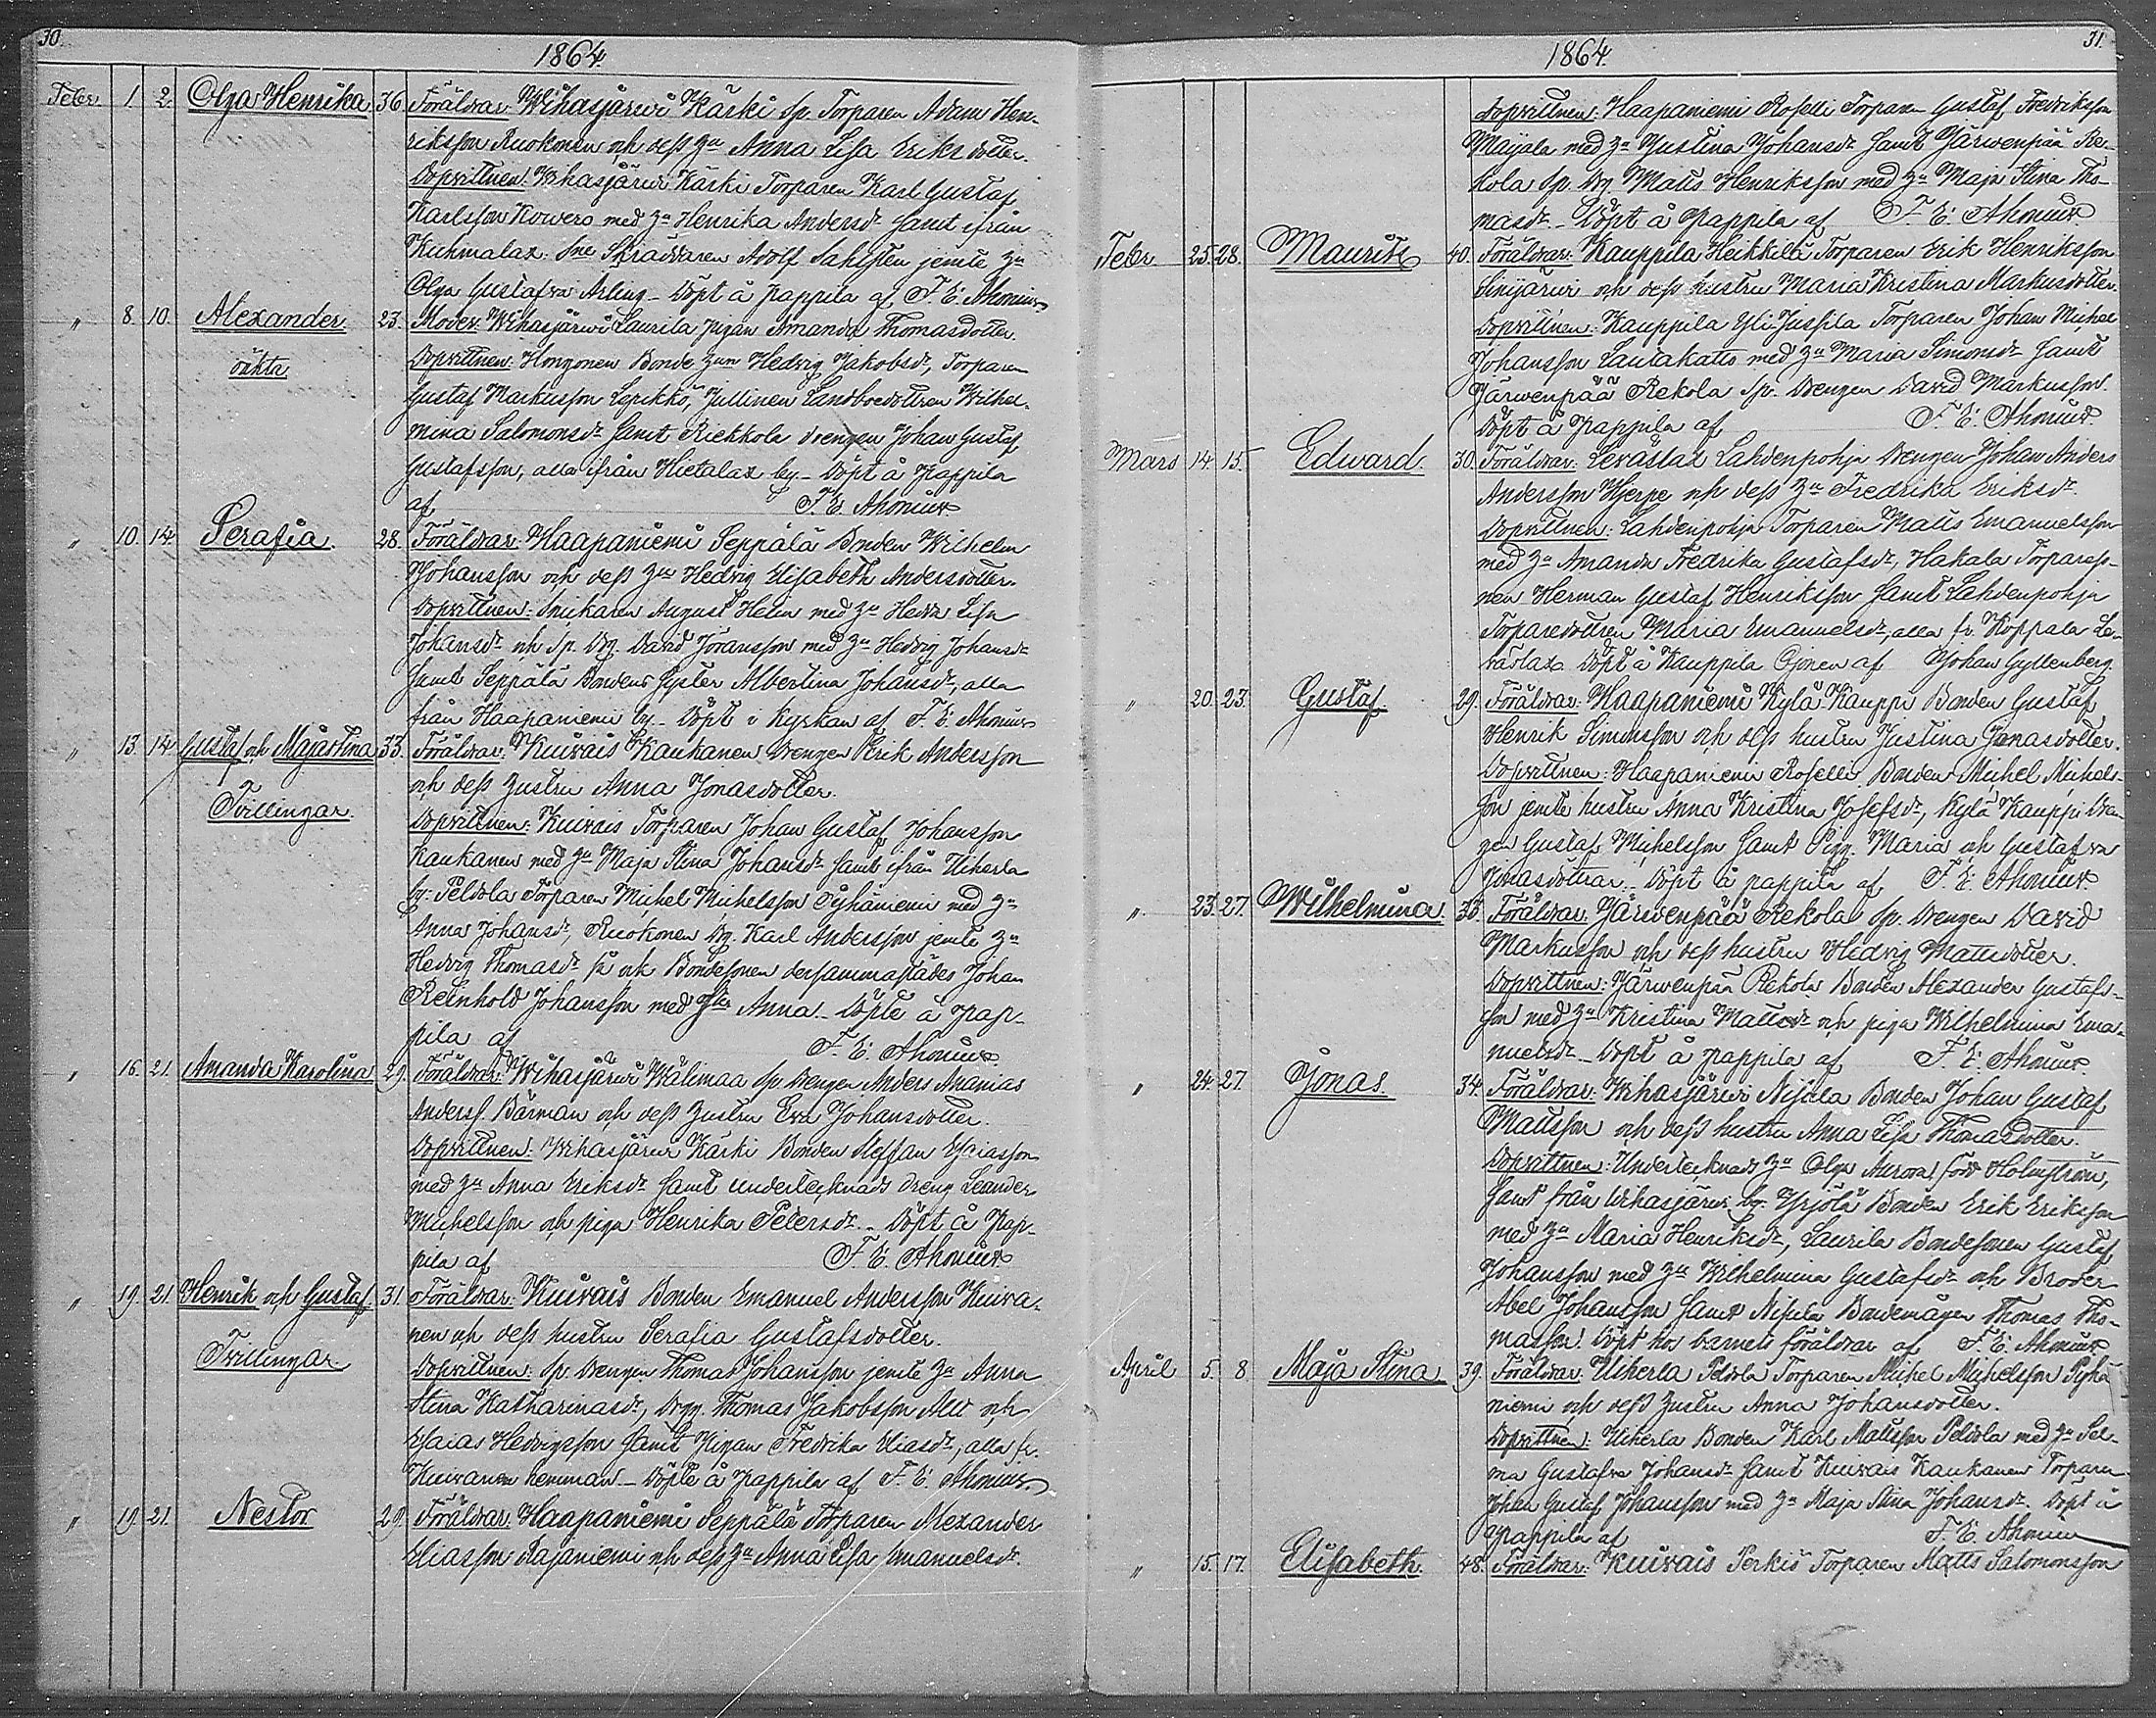 30.
1864.
Febr. 1. 2. Olga Henrika 36. Föräldrar: Wihasjärwi Käski Sp. Torparen Adam Hen-
riksson Ruokonen och dess Hu Anna Lisa Eriksdotter.
Dopvittnen: Wihasjärwi Käski Torparen Karl Gustaf
Karlsson Kowero med Hu Henrika Andersdr samt ifrån
Kuhmalax Skräddaren Adolf Sahlsten jemte Hu
Olga Gustafva Arling – Döpt å Pappila af F. E. Ahonius
" 8. 10. Alexander 23. Moder: Wihasjärwi Laurila pigan Amanda Thomasdotter.
oäkta
Dopvittnen: Hongonen Bonde Hedvig Jakobsdr, Torparen
Gustaf Markusson Lepikkö, Jullinen Landboedottren Wilhel-
mina Salomonsdr samt Riekkola drengen Johan Gustaf
Gustafsson, alla ifrån Hietalax by – Döpt å Pappila
af F. E. Ahonius
" 10. 14. Serafia. 28. Föräldrar: Haapaniemi Seppälä Bonden Wilhelm
Johansson och dess Hu Hedvig Elisabeth Andersdotter.
Dopvittnen: Snickaren August Helin med Hu Hedda Lisa
Johansdr och Sp. Drg. David Göransson med Hu Hedvig Johansdr
samt Seppälä Bondens syster Albertina Johansdr, alla
från Haapaniemi by – Döpt i Kyrkan af F. E. Ahonius
" 13. 14. Gustaf och Majastina 33. Föräldrar: Kuivais Kaukanen Drengen Erik Andersson
och dess Hustru Anna Jonasdotter.
Tvillingar.
Dopvittnen: Kuivais Torparen Johan Gustaf Johansson
Kaukanen med Hu Maja Stina Johansdr samt ifrån Uikerla
by: Peldola Torparen Michel Michelsson Pyhäniemi med Hu
Anna Johansdr, Ruokonen Drg. Karl Andersson jemte Hu
Hedvig Thomasdr och Bondesonen dersammastädes Johan
Reinhold Johansson med Anna – Döpte å Pap-
pila af F. E. Ahonius
" 16. 21. Amanda Karolina 29. Föräldrar: Wihasjärwi Wälimaa Sp. Drengen Anders Ananias
Anderss. Bärman och dess Hustru Eva Johansdotter.
Dopvittnen: Wihasjärwi Käski Bonden Steffan Esaiasson
med Hu Anna Eriksdr samt undertecknads dreng Leander
Michelsson och piga Henrika Petersdr – Döpt å Pap-
pila af F. E. Ahonius
" 19. 21. Henrik och Gustaf. 31. Föräldrar: Kuivais Bonden Emanuel Andersson Kuiva-
nen och dess hustru Serafia Gustafsdotter.
Tvillingar.
Dopvittnen: Sp. Drengen Thomas Johansson jemte Hu Anna
Stina Katharinasdr, Drgg. Thomas Jakobsson och
Esaias Hedvigsson samt Pigan Fredrika Eliasdr, alla fr.
Kuivanen hemman – Döpte å Pappila af F. E. Ahonius
" 19. 21. Nestor 29. Föräldrar: Haapaniemi Seppälä Torparen Alexander
Eliasson Rajaniemi och dess Hu Anna Lisa Emanuelsdr.
31.
1864.
Dopvittnen: Haapaniemi Roselli Torparen Gustaf Fredriksson
Maijala med Hu Justina Johansdr samt Järwenpää Re-
kola Sp. Drg Matts Henriksson med Hu Maja Stina Tho-
masdr – Döpt å Pappila af F. E. Ahonius
Febr. 25. 28. Maurits 40. Föräldrar: Kauppila Heikkilä Torparen Erik Henriksson
Sinijärwi och dess hustru Maria Kristina Markusdotter.
Dopvittnen: Kauppila Yli Jussila Torparen Johan Michel
Johansson Lautakatto med Hu Maria Simonsdr samt
Järwenpää Rekola Sp. Drengen David Markusson.
Döpt å Pappila af F. E. Ahonius
Mars 14. 15. Edward. 30. Föräldrar: Levästlax Lahdenpohja Drengen Johan Anders
Andersson Hjerpe och dess Hu Fredrika Eriksdr.
Dopvittnen: Lahdenpohja Torparen Matts Emanuelsson
med Hu Amanda Fredrika Gustafsdr, Hakala Torpareso-
nen Herman Gustaf Henriksson samt Lahdenpohja
Torparedottren Maria Emanuelsdr, alla fr. Le-
västlax. Döpt å Kauppila af Johan Gyllenberg.
" 20. 23. Gustaf 29. Föräldrar: Haapaniemi Kylä Kauppi Bonden Gustaf
Henrik Simonsson och dess hustru Justina Jonasdotter.
Dopvittnen: Haapaniemi Roselli Bonden Michel Michels-
son jemte hustru Anna Kristina Josefsdr, Kylä Kauppi Dren-
gen Gustaf Michelsson samt Pigg. Maria och Gustafva
Jonasdöttrar – Döpt å Pappila af F. E. Ahonius
" 23. 27. Wilhelmina. 35. Föräldrar: Järwenpää Rekola Sp. Drengen David
Markusson och dess hustru Hedvig Mattsdotter.
Dopvittnen: Järwenpää Rekola Bonden Alexander Gustafs-
son med Hu Kristina Mattsdr och piga Wilhelmina Ema-
nuelsdr – Döpt å Pappila af F. E. Ahonius
" 24. 27. Jonas. 34. Föräldrar: Wihasjärwi Nisula Bonden Johan Gustaf
Mattsson och dess hustru Anna Lisa Thomasdotter.
Dopvittnen: Undertecknads Hu Olga Aurora född Holmström,
samt från Wihasjärwi by: Yrjölä Bonden Erik Eriksson
med Hu Maria Henriksdr, Laurila Bondesonen Gustaf
Johansson med Hu Wilhelmina Gustafsdr och Broder
Abel Johansson samt Nisula Bondemågen Thomas Tho-
masson. Döpt hos barnets föräldrar af F. E. Ahonius
April 5. 8. Maja Stina 39. Föräldrar: Uikerla Peldola Torparen Michel Michelsson Pyhä
niemi och dess Hustru Anna Johansdotter.
Dopvittnen: Uikerla Bonden Karl Mattsson Peldola med Hu Sel-
ma Gustafva Johansdr samt Kuivais Kaukanen Torparen
Johan Gustaf Johansson med Hu Maja Stina Johansdr. Döpt å
Pappila af F. E. Ahonius
" 15. 17. Elisabeth. 48. Föräldrar: Kuivais Perkiö Torparen Matts Salomonsson